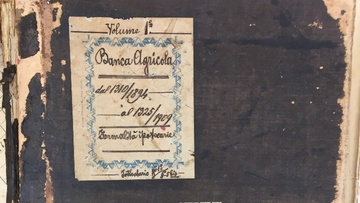 Volume 1º
Banca Agricola
dal 1310/1894
al 1325/1909
Formalità ipotecarie